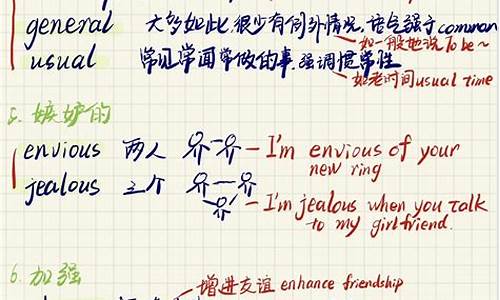 general 大多如此,很少有例外情况,语气强于common
如一般地说To be~
usual 常见常闻常做的事,强调惯常性
如老时间usual time
5. 嫉妒的
envious 两人 — I'm envious of your
new ring
jealous 三个 — I'm jealous when you talk
to my girlfriend.
6. 加强
增进友谊 enhance friendship